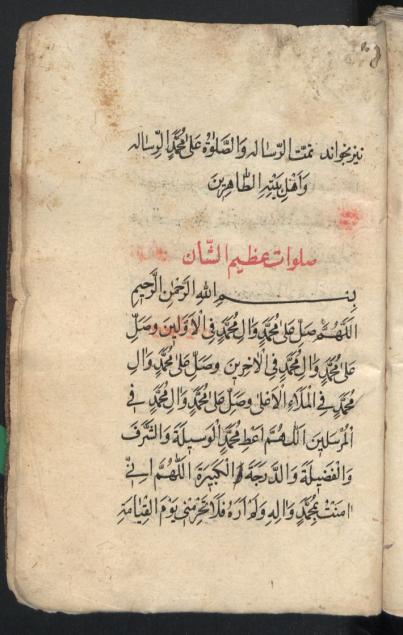 نیز بخواند تمت الرّساله وَالصَّلوٰةُ عَلیٰ مُحَمَّدٍ الرِّساله
وَاَهْلِ بَیْتِهِ الطّاهِرینَ
صلوات عظیم الشّان
بِسْمِ اللهِ الرَّحْمٰنِ الرَّحیمِ
اَللّٰهُمَّ صَلِّ عَلیٰ مُحَمَّدٍ وَالِ مُحَمَّدٍ فِی الْاَوَّلینَ وَصَلِّ
عَلیٰ مُحَمَّدٍ وَالِ مُحَمَّدٍ فِی الْاخِرینَ وَصَلِّ عَلیٰ مُحَمَّدٍ وَالِ
مُحَمَّدٍ فِی الْمَلَاءِ الْاَعْلیٰ وَصَلِّ عَلیٰ مُحَمَّدٍ وَالِ مُحَمَّدٍ فِی
الْمُرْسَلینَ اَللّٰهُمَّ اَعْطِ مُحَمَّدٍ الْوَسیلَةَ وَالشَّرَفَ
وَالْفَضیلَةَ وَالدَّرَجَةَ الْکَبیرَةَ اَللّٰهُمَّ اِنّی
امَنْتُ بِمُحَمَّدٍ وَالِهِ وَلَمْ اَرَهُ فَلَا تَحْرِمْنی یَوْمَ الْقِیٰامَةِ